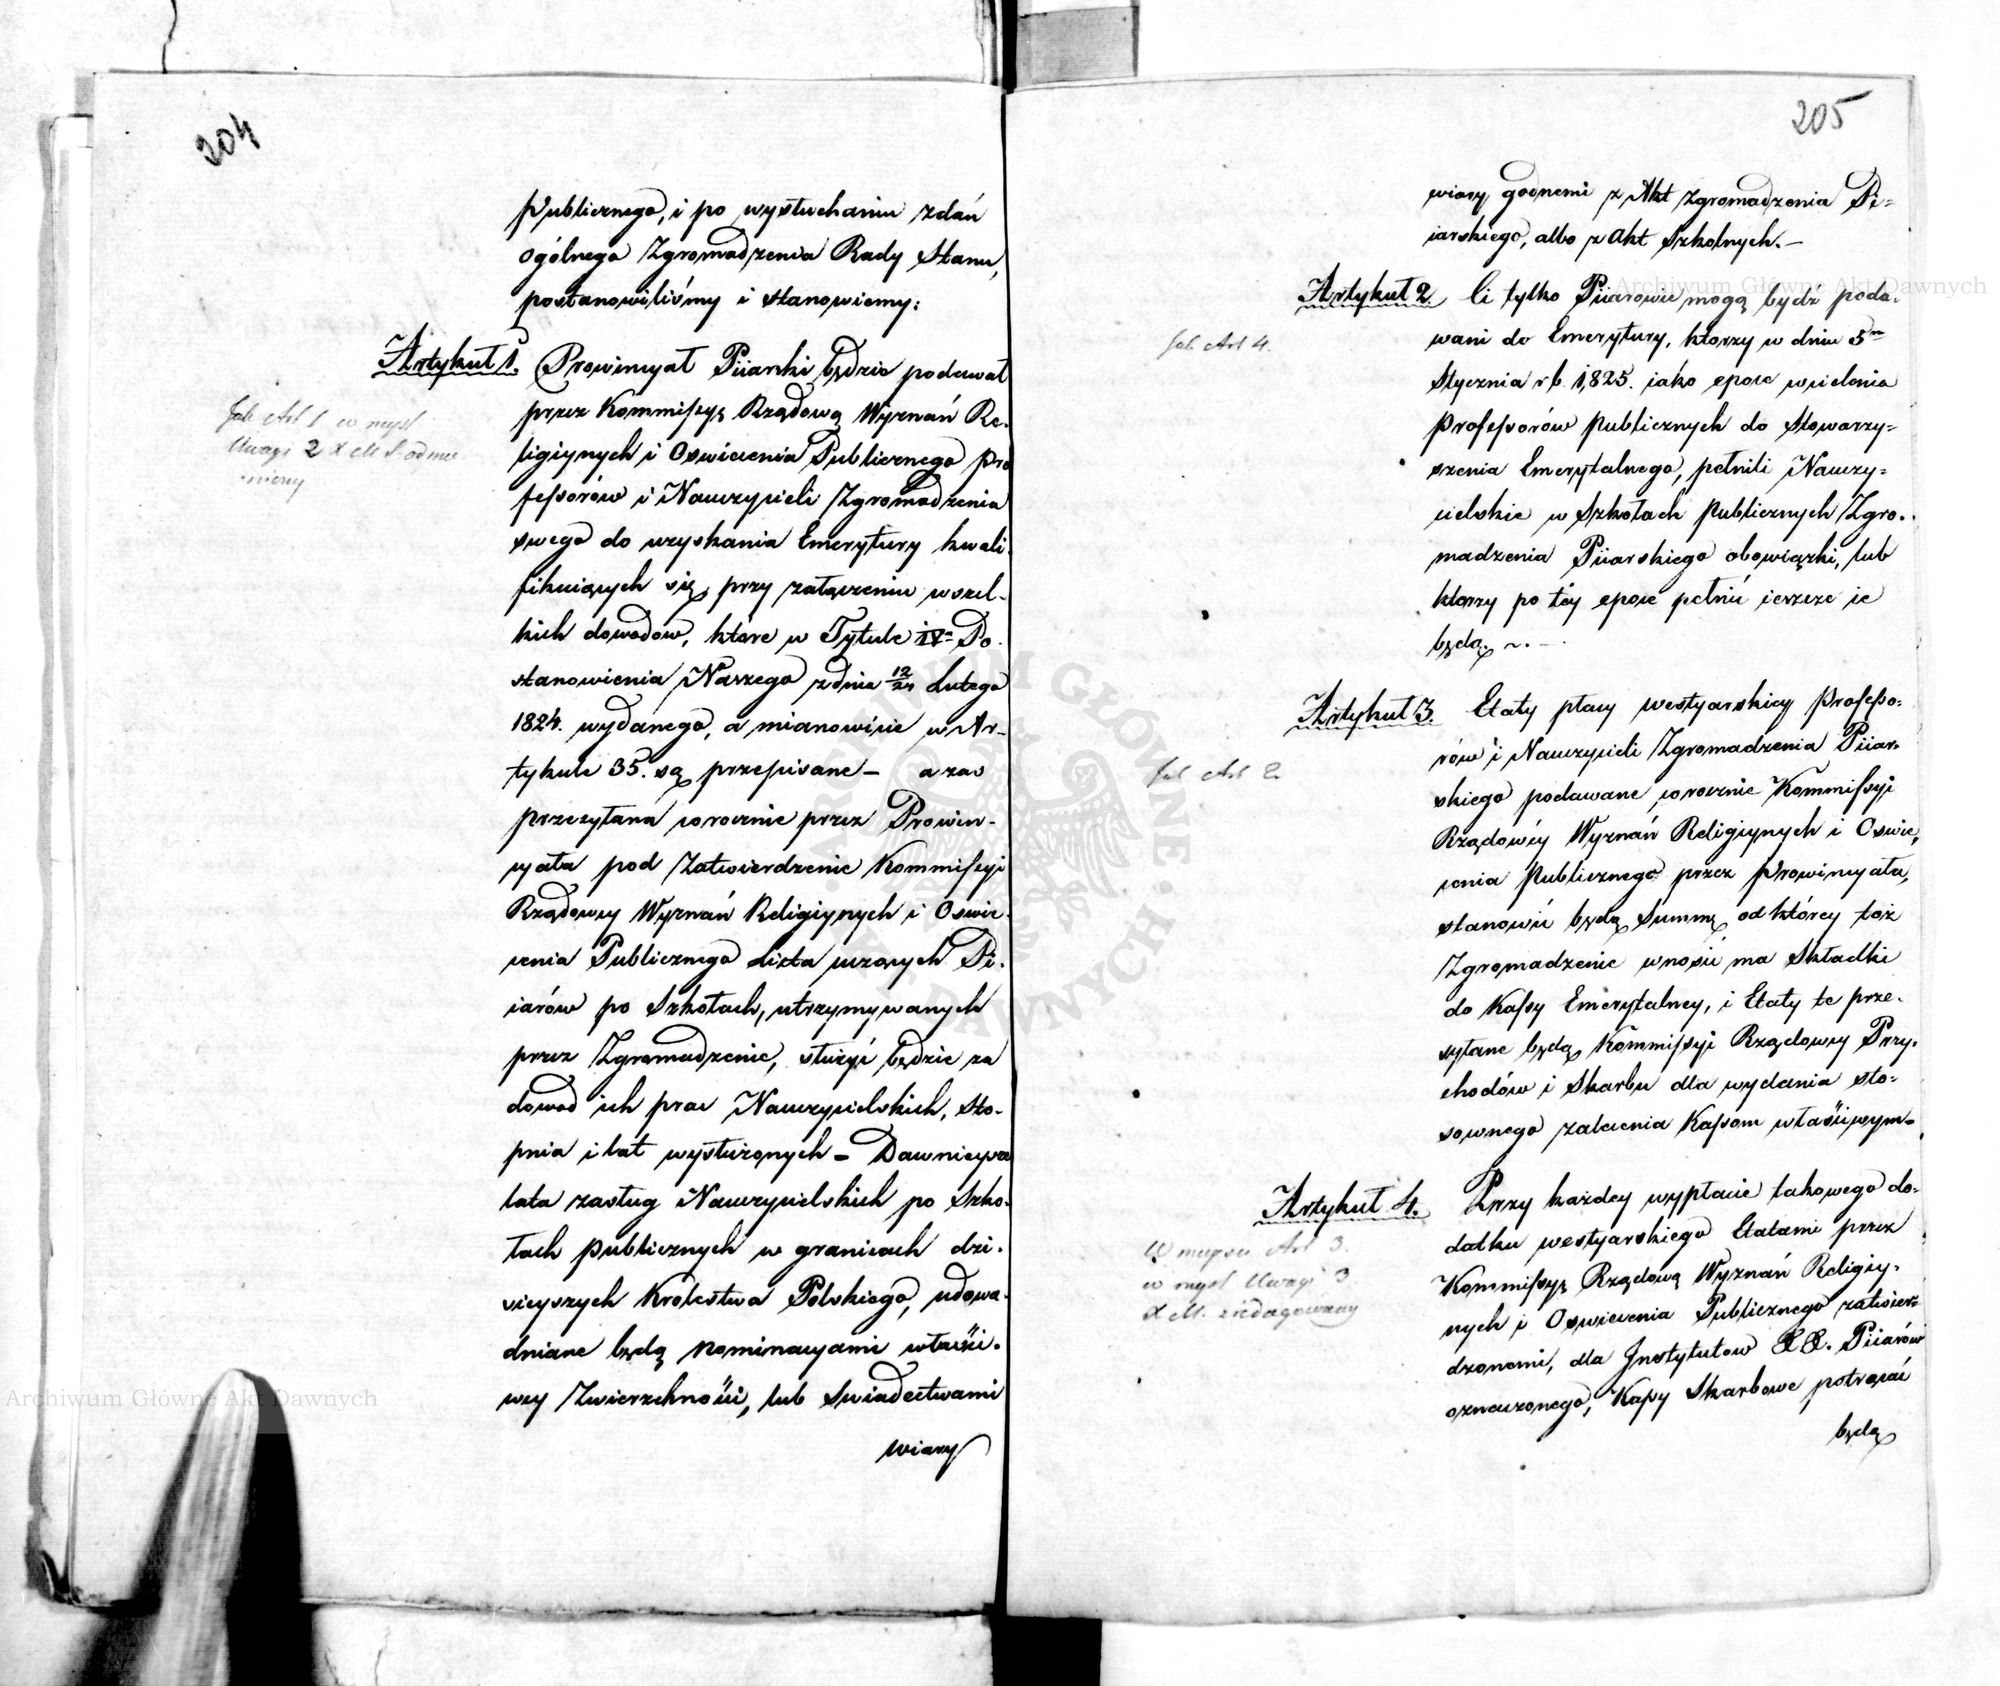 204
Publicznego, i po wysłuchaniu zdań
ogólnego Zgromadzenia Rady Stanu,
postanowiliśmy i stanowiemy:
Artykuł 1. Prowincyał Piiarski będzie podawał
przez Kommissyę Rządową Wyznań Re-
ligiynych i Oswiecenia Publicznego Pro
fessorów i Nauczycieli Zgromadzenia
swego do uzyskania Emerytury kwali
fikuiących się, przy załączeniu wszel-
kich dowodow, które w Tytule IV Po-
stanowienia Naszego z dnia 12/24 Lutego
1824. wydanego, a mianowicie w Ar-
tykule 35. są przepisane – a zas
przesyłana corocznie przez Prowin-
cyała pod Zatwierdzenie Kommissyi
Rządowey Wyznań Religiynych i Oswie-
cenia Publicznego Lista uczących Pi-
iarów po Szkołach, utrzymywanych
przez Zgromadzenie, służyć będzie za
dowod ich prac Nauczycielskich, sto-
pnia i lat wysłużonych – Dawnieysze
lata zasług Nauczycielskich po Szko-
łach publicznych w granicach dzi-
sieyszych Królestwa Polskiego, udowa-
dniane będą nominacyami właści-
wey Zwierzchności, lub Swiadectwami
wiary
Jak Art 1 w mysl
Uwagi 2 X
205
wiary godnemi z Akt Zgromadzenia Pi-
iarskiego, albo z Akt Szkolnych. –
Artykuł 2. Ci tylko Piiarowie mogą bydz poda-
wani do Emerytury, którzy w dniu 5m
Stycznia r b. 1825. iako epoce wcielenia
Professorów Publicznych do Stowarzy-
szenia Emerytalnego, pełnili Nauczy-
cielskie w Szkołach Publicznych Zgro-
madzenia Piiarskiego obowiązki, lub
którzy po téy epoce pełnić ieszcze ie
będą.
Jak Art 4.
Artykuł 3. Etaty płacy westyarskiey Professo-
rów i Nauczycieli Zgromadzenia Piiar-
skiego podawane corocznie Kommissyi
Rządowéy Wyznań Religiynych i Oswie-
cenia Publicznego przez Prowincyała,
stanowić będą Summę, od którey toż
Zgromadzenie wnosić ma Składki
do Kassy Emerytalney, i Etaty te prze-
syłane będą Kommissyi Rządowey Przy-
chodów i Skarbu dla wydania sto-
sownego zalecenia Kassom właściwym.
Jak Art 2.
Artykuł 4. Przy każdey wypłacie takowego do-
datku westyarskiego Etatami przez
Kommissyę Rządową Wyznań Religiy-
nych i Oswiecenia Publicznego zatwier-
dzonemi, dla Instytutow XX. Piiarów
oznaczonego, Kassy Skarbowe potrącać
będą
W mieyscu Art 3.
w mysl Uwagi 3
X M. zredagowany
Archiwum Główne Akt Dawnych
Archiwum Główne Akt Dawnych
ARCHIWUM GŁÓWNE AKT DAWNYCH